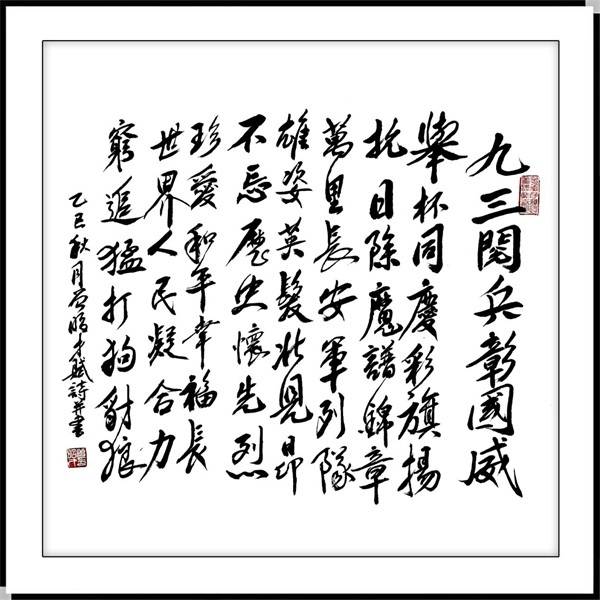 九三閱兵彰國威
舉杯同慶彩旗揚
抗日除魔譜錦章
萬里長安軍列隊
雄姿英髮壯見昂
不忘歷史懷先烈
珍愛和平幸福長
世界人民凝合力
窮追猛打狗豺狼
乙巳秋月才賦詩并書